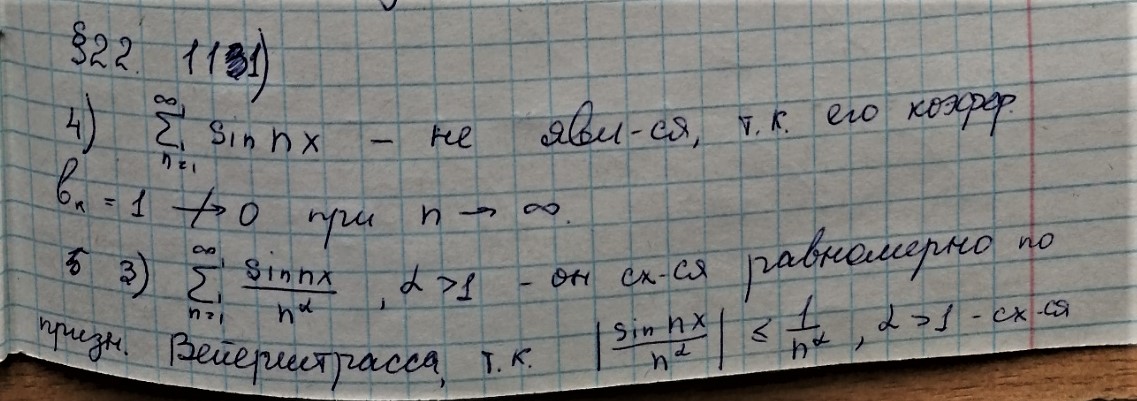 §22. 1131)
4) ∞ ∑ n=1 sin nx – не явл-ся, т.к. его коэфф.
bₙ = 1 ↛ 0 при n → ∞.
3) ∞ ∑ n=1 sin nx / n^α , α > 1 – он сх-ся равномерно по
призн. Вейерштрасса, т.к. |sin nx / n^α| ≤ 1 / n^α , α > 1 – сх-ся